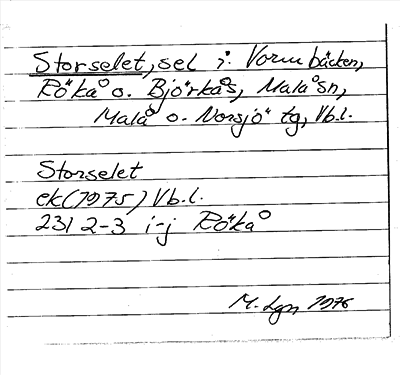 Storselet, sel i Vormbäcken,
Rökå o. Björkås, Malå sn,
Malå o. Norsjö tg, Vb.l.
Storselet
ek (1975) Vb.l.
231 2-3 i-j Rökå
M. Lgn 1976